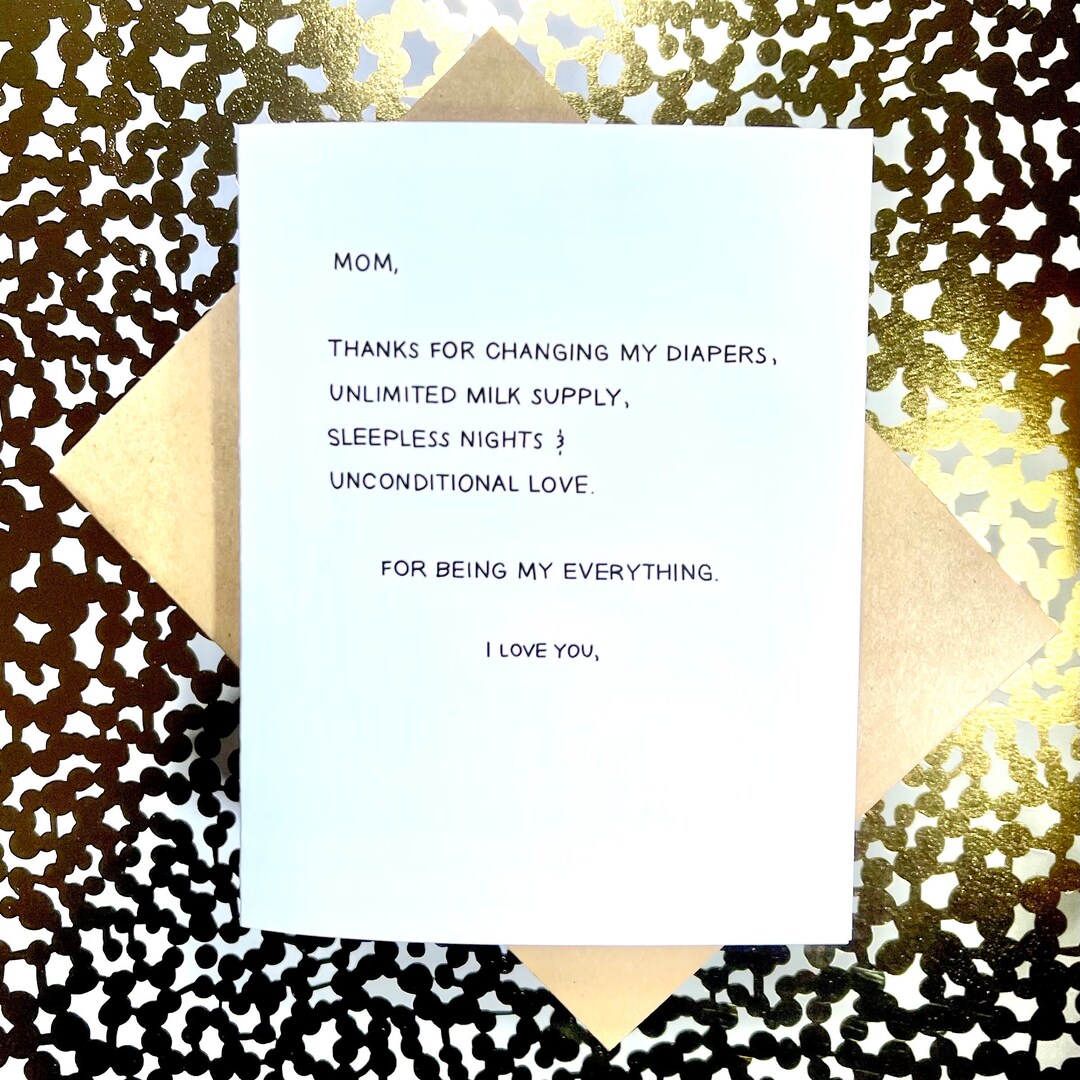 MOM,
THANKS FOR CHANGING MY DIAPERS,
UNLIMITED MILK SUPPLY,
SLEEPLESS NIGHTS &
UNCONDITIONAL LOVE.
FOR BEING MY EVERYTHING.
I LOVE YOU,